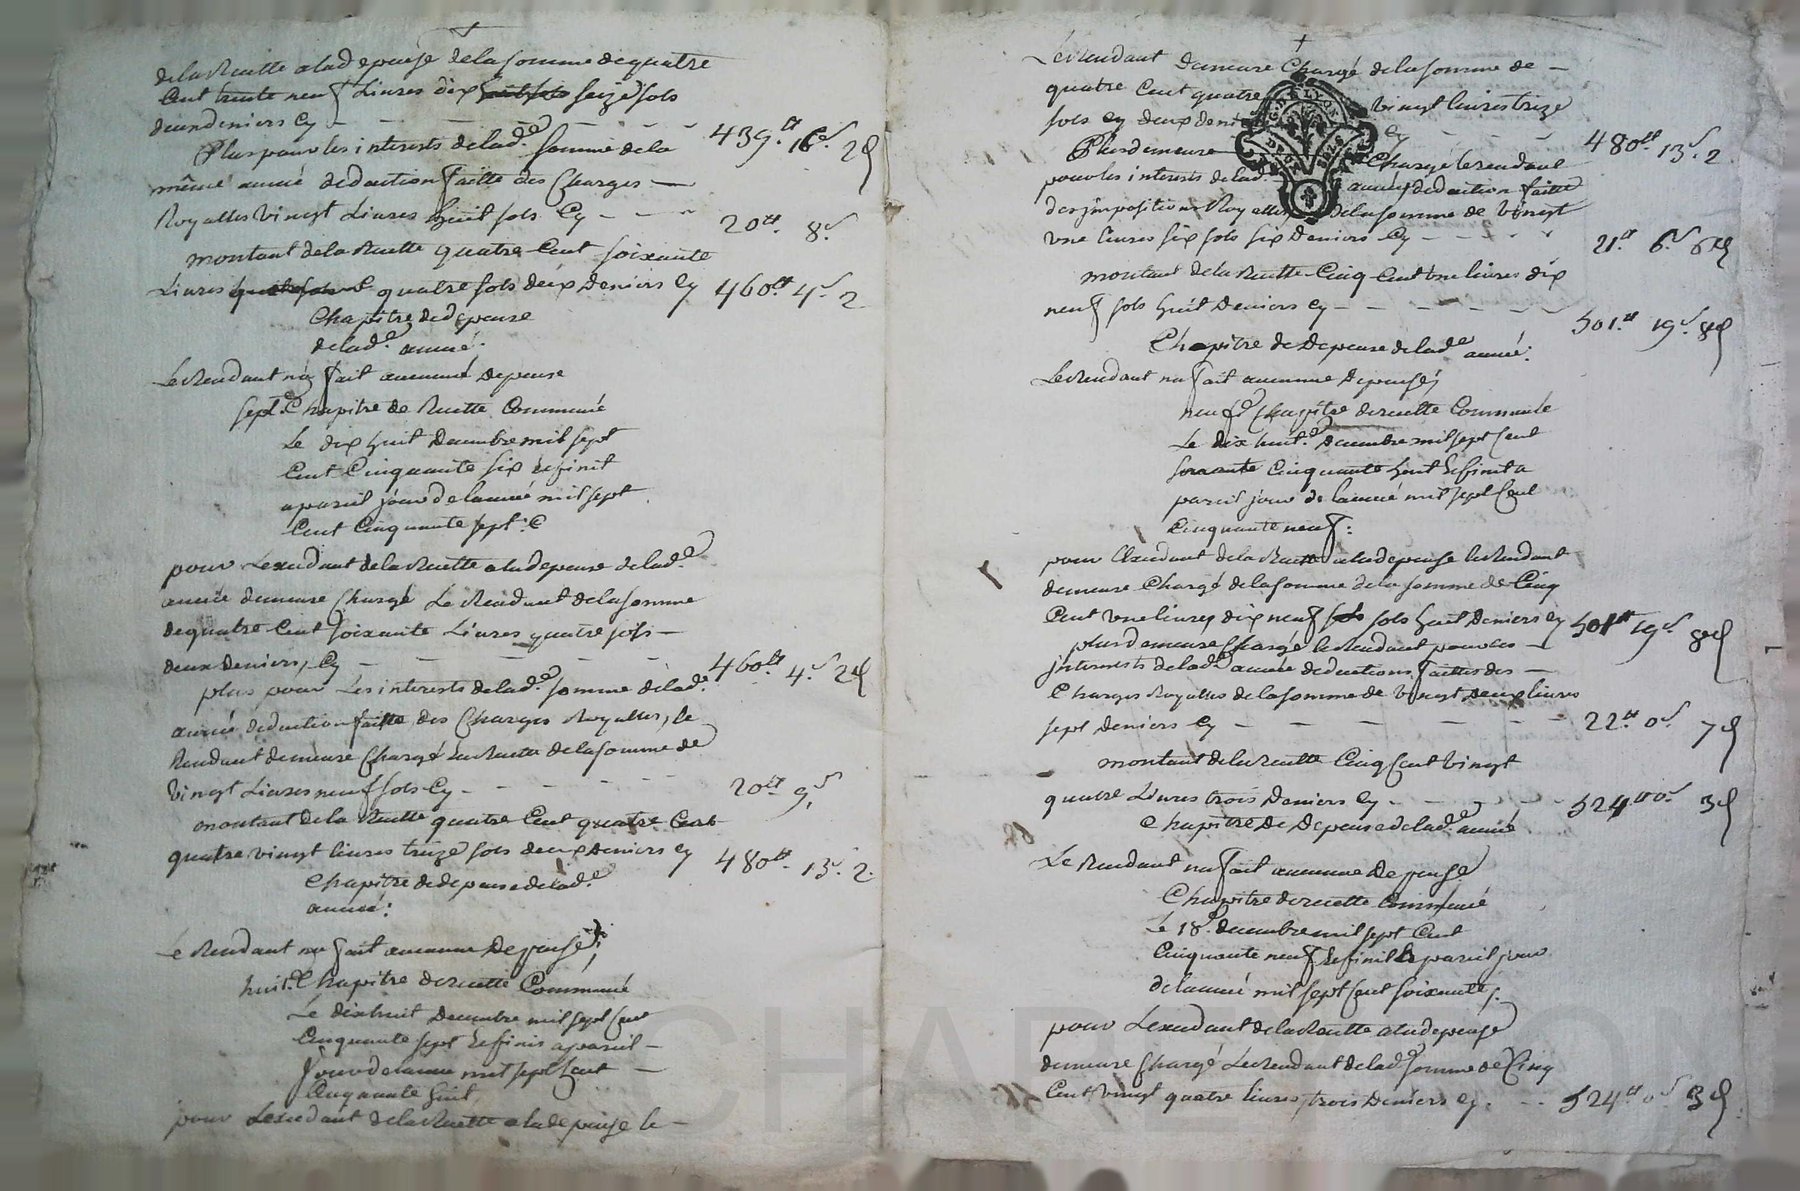 de la Recette a la depense de la somme de quatre
Cent trente neuf Livres dix seize sols
deux deniers Cy 439.tt 16.s 2d
Plus pour les interests de lad.e somme de la
même année deduction faitte des Charges
Royalles vingt Livres huit sols Cy 20tt. 8.s
montant de la Recette quatre Cent soixante
Livres quatre sols deux Deniers Cy 460tt 4.s 2
Chapitre de depense
de lad.e année.
Le Rendant na fait aucune depense
sept.e Chapitre de Recette Commencé
Le dix huit Decembre mil sept
Cent Cinquante six & finit
a pareil jour de lannée mil sept
Cent Cinquante sept.
pour Lexcedant de la Recette a la depense de lad.e
année demeure Chargé Le Rendant de la somme
de quatre Cent soixante Livres quatre sols
deux deniers, Cy 460tt 4.s 2d
plus pour Les interests de lad.e somme de lad.e
année deduction faitte des Charges Royalles, le
Rendant demeure Chargé de la somme de
vingt Livres neuf sols Cy 20tt 9s
montant de la Recette quatre Cent quatre Cent
quatre vingt livres treize sols deux Deniers Cy 480tt. 13.s 2.
Chapitre de depense de lad.e
année:
Le Rendant na fait aucunne Depense;
huit.e Chapitre de recette Commencé
Le dix huit Decembre mil sept Cent
Cinquante sept & finis a pareil
Jour de lannee mil sept Cent
Cinquante huit
pour Lexcedant de la Recette a la depense le
Le Rendant demeure Chargé de la somme de
quatre Cent quatre vingt livres treize
sols Cy deux deniers Cy 480tt. 13.s 2
Plus demeure Chargé le rendant
pour les interests de lad.e année deduction faitte
des impositions Royalles de la somme de vingt
une livres six sols six Deniers Cy 21.tt 6.s 6d
montant de la Recette Cinq Cent une livres dix
neuf sols huit Deniers Cy 501.tt 19.s 8d
Chapitre de Depense de lad.e année:
Le Rendant na fait aucunne Depense;
neuf.e Chapitre de recette Commencée
Le dix huit.e Decembre mil sept Cent
Cinquante huit & finit a
pareil jour de lannée mil sept Cent
Cinquante neuf:
pour Lexcedant de la Recette a la depense le Rendant
demeure Chargé de la somme de la somme de Cinq
Cent une livres dix neuf sols huit Deniers Cy 501tt 19s 8d
plus demeure Chargé le Rendant pour les
interests de lad.e année deductions faittes des
Charges Royalles de la somme de vingt Deux livres
sept deniers Cy 22.tt 0.s 7d
montant de la Recette Cinq Cent vingt
quatre Livres trois Deniers Cy 524tt 0s 3d
Chapitre De Depense de lad.e année
Le Rendant na fait aucunne Depense
Chapitre de recette Commencé
Le 18.e decembre mil sept Cent
Cinquante neuf & finit a pareil jour
de lannée mil sept Cent soixante;
pour Lexcedant de la Recette a la depense
demeure Chargé Le Rendant de lad.e somme de Cinq
Cent vingt quatre livres, trois Deniers Cy. 524tt 0s 3d